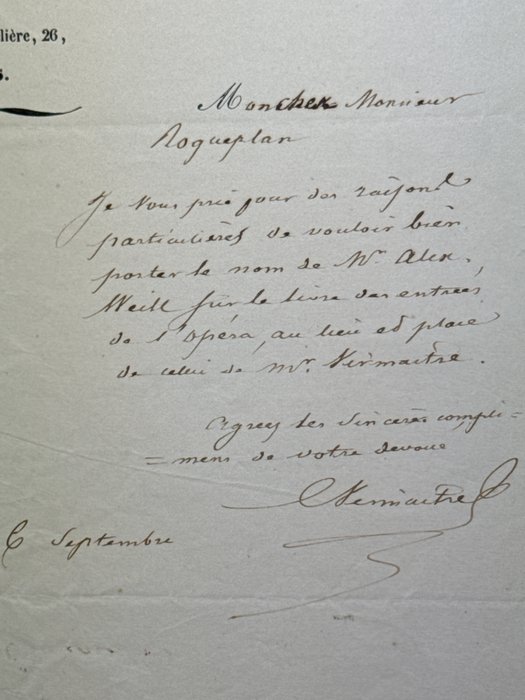 lière, 26,
s.
Mon cher Monsieur
Roqueplan
Je vous prie pour des raisons
particulières de vouloir bien
porter le nom de Mr. Alex.
Weill sur le livre des entrées
de l'opéra, au lieu et place
de celui de mr. Virmaître.
Agreez les sincères compli=
=mens de votre devoué
Virmaitre
6 Septembre